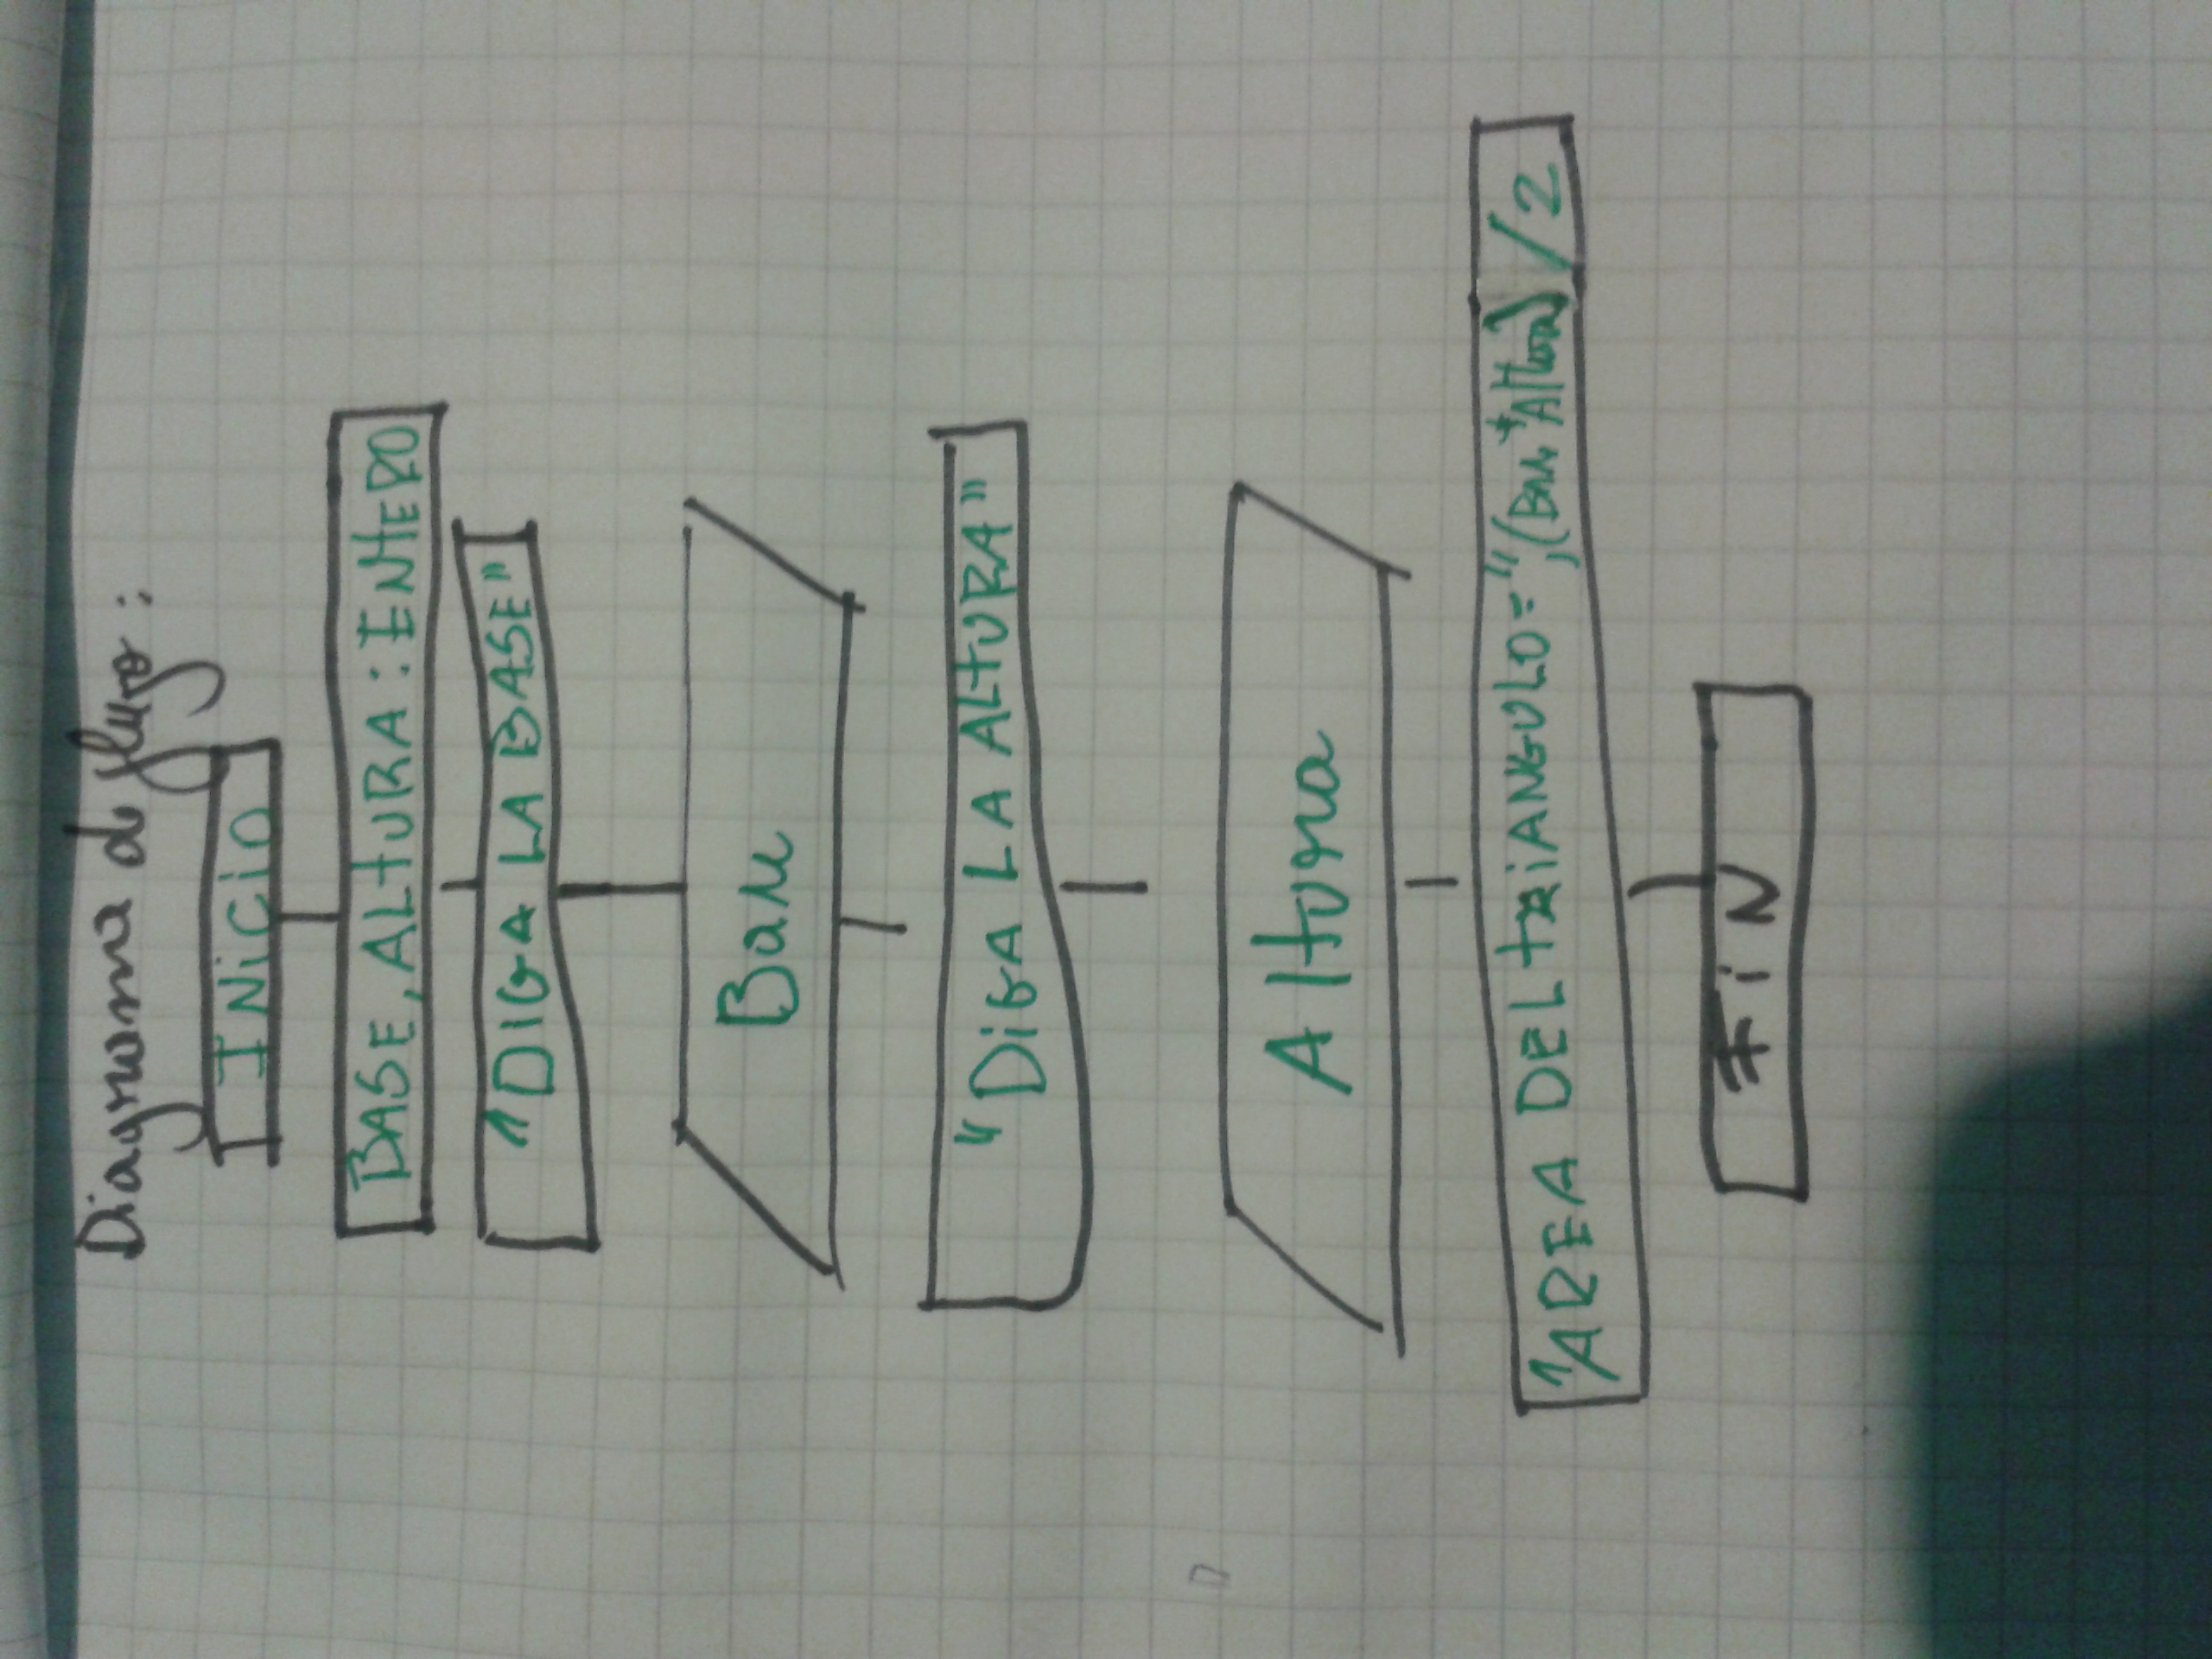 Diagrama de flujo:
INiCiO
BASE, ALtURA: ENtERO
"DIGA LA BASE"
Base
"DiGA LA ALtURA"
Altura
"AREA DEL tRiANGULO=",(Base*Altura)/2
FiN